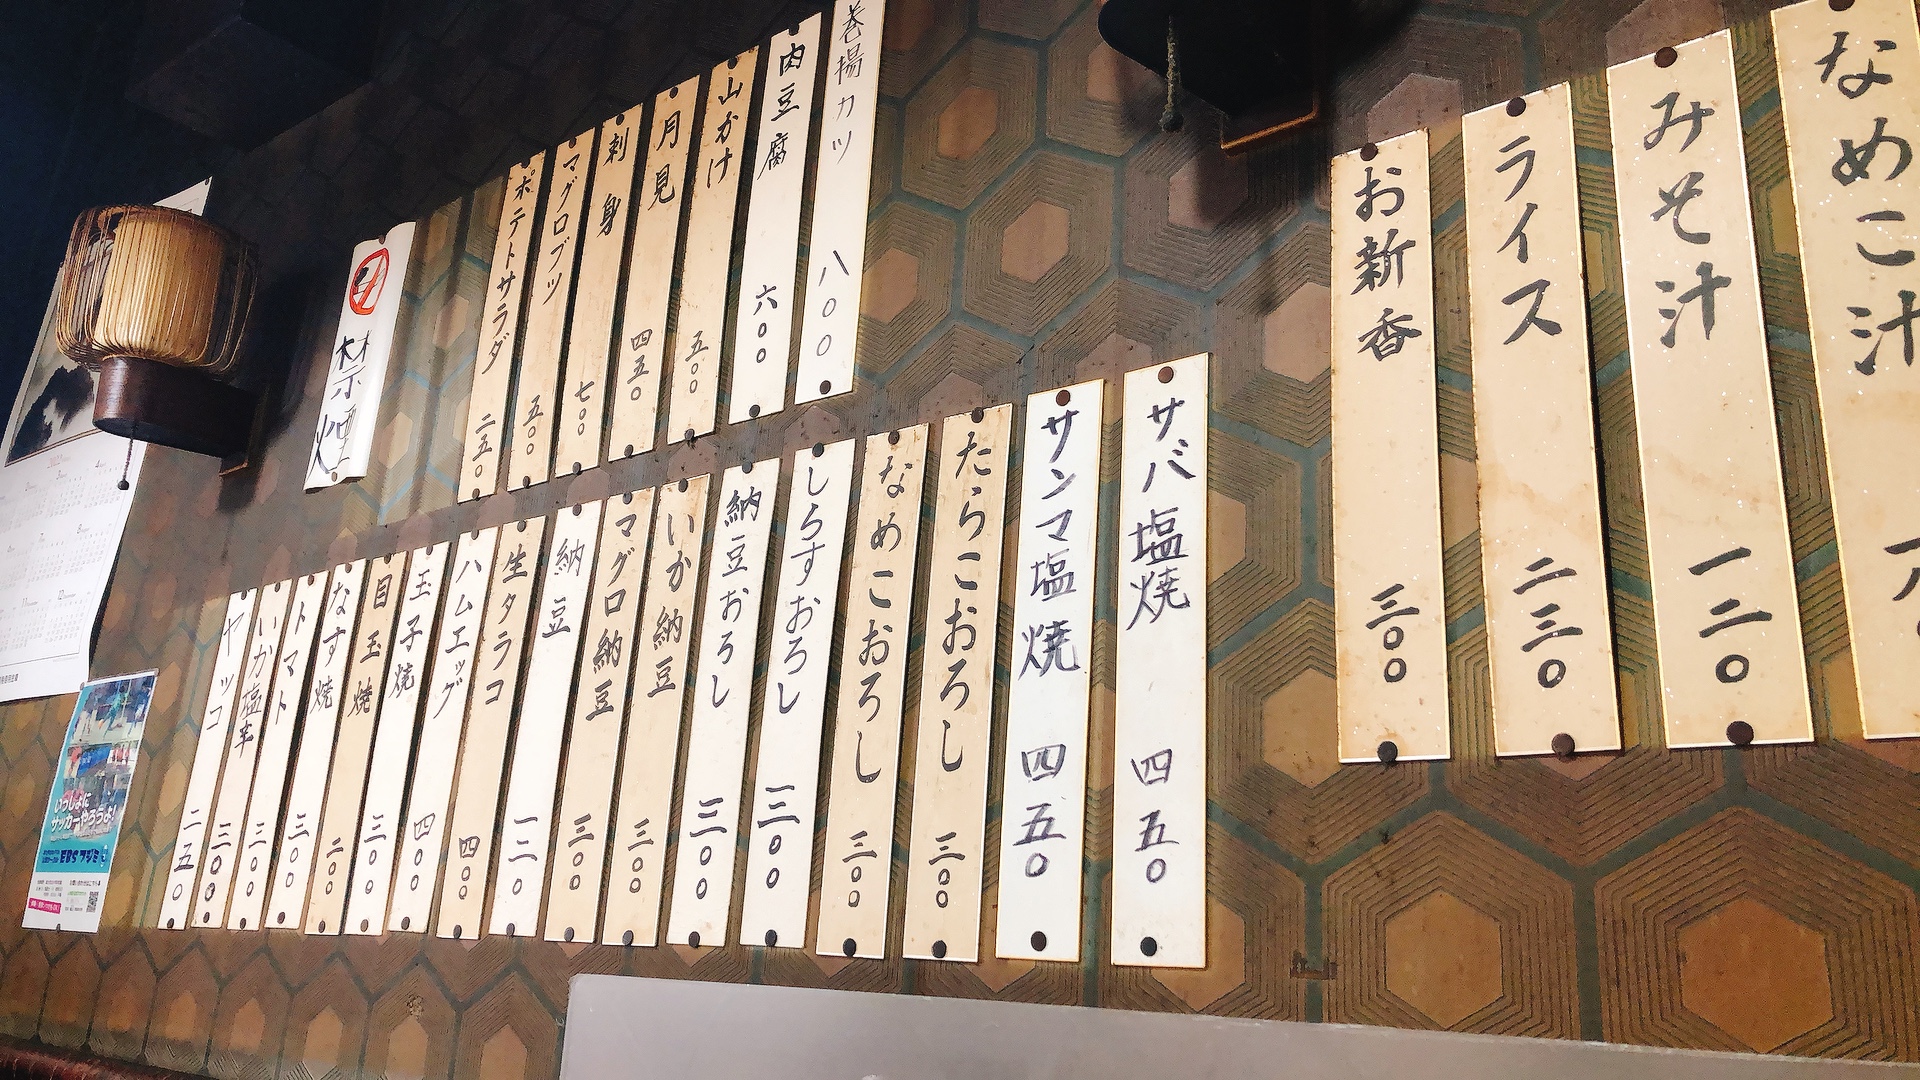 なめこ汁
みそ汁 一二〇
ライス 二三〇
お新香 三〇〇
巻揚カツ 八〇〇
肉豆腐 六〇〇
山かけ 五〇〇
月見 四五〇
刺身 七〇〇
マグロブツ 五〇〇
ポテトサラダ 二五〇
禁煙
サバ塩焼 四五〇
サンマ塩焼 四五〇
たらこおろし 三〇〇
なめこおろし 三〇〇
しらすおろし 三〇〇
納豆おろし 三〇〇
いか納豆 三〇〇
マグロ納豆 三〇〇
納豆 一二〇
生タラコ 四〇〇
ハムエッグ 四〇〇
玉子焼 三〇〇
目玉焼 二〇〇
なす焼 三〇〇
トマト 三〇〇
いか塩辛 三〇〇
ヤッコ 二五〇
いっしょに
サッカーやろうよ!